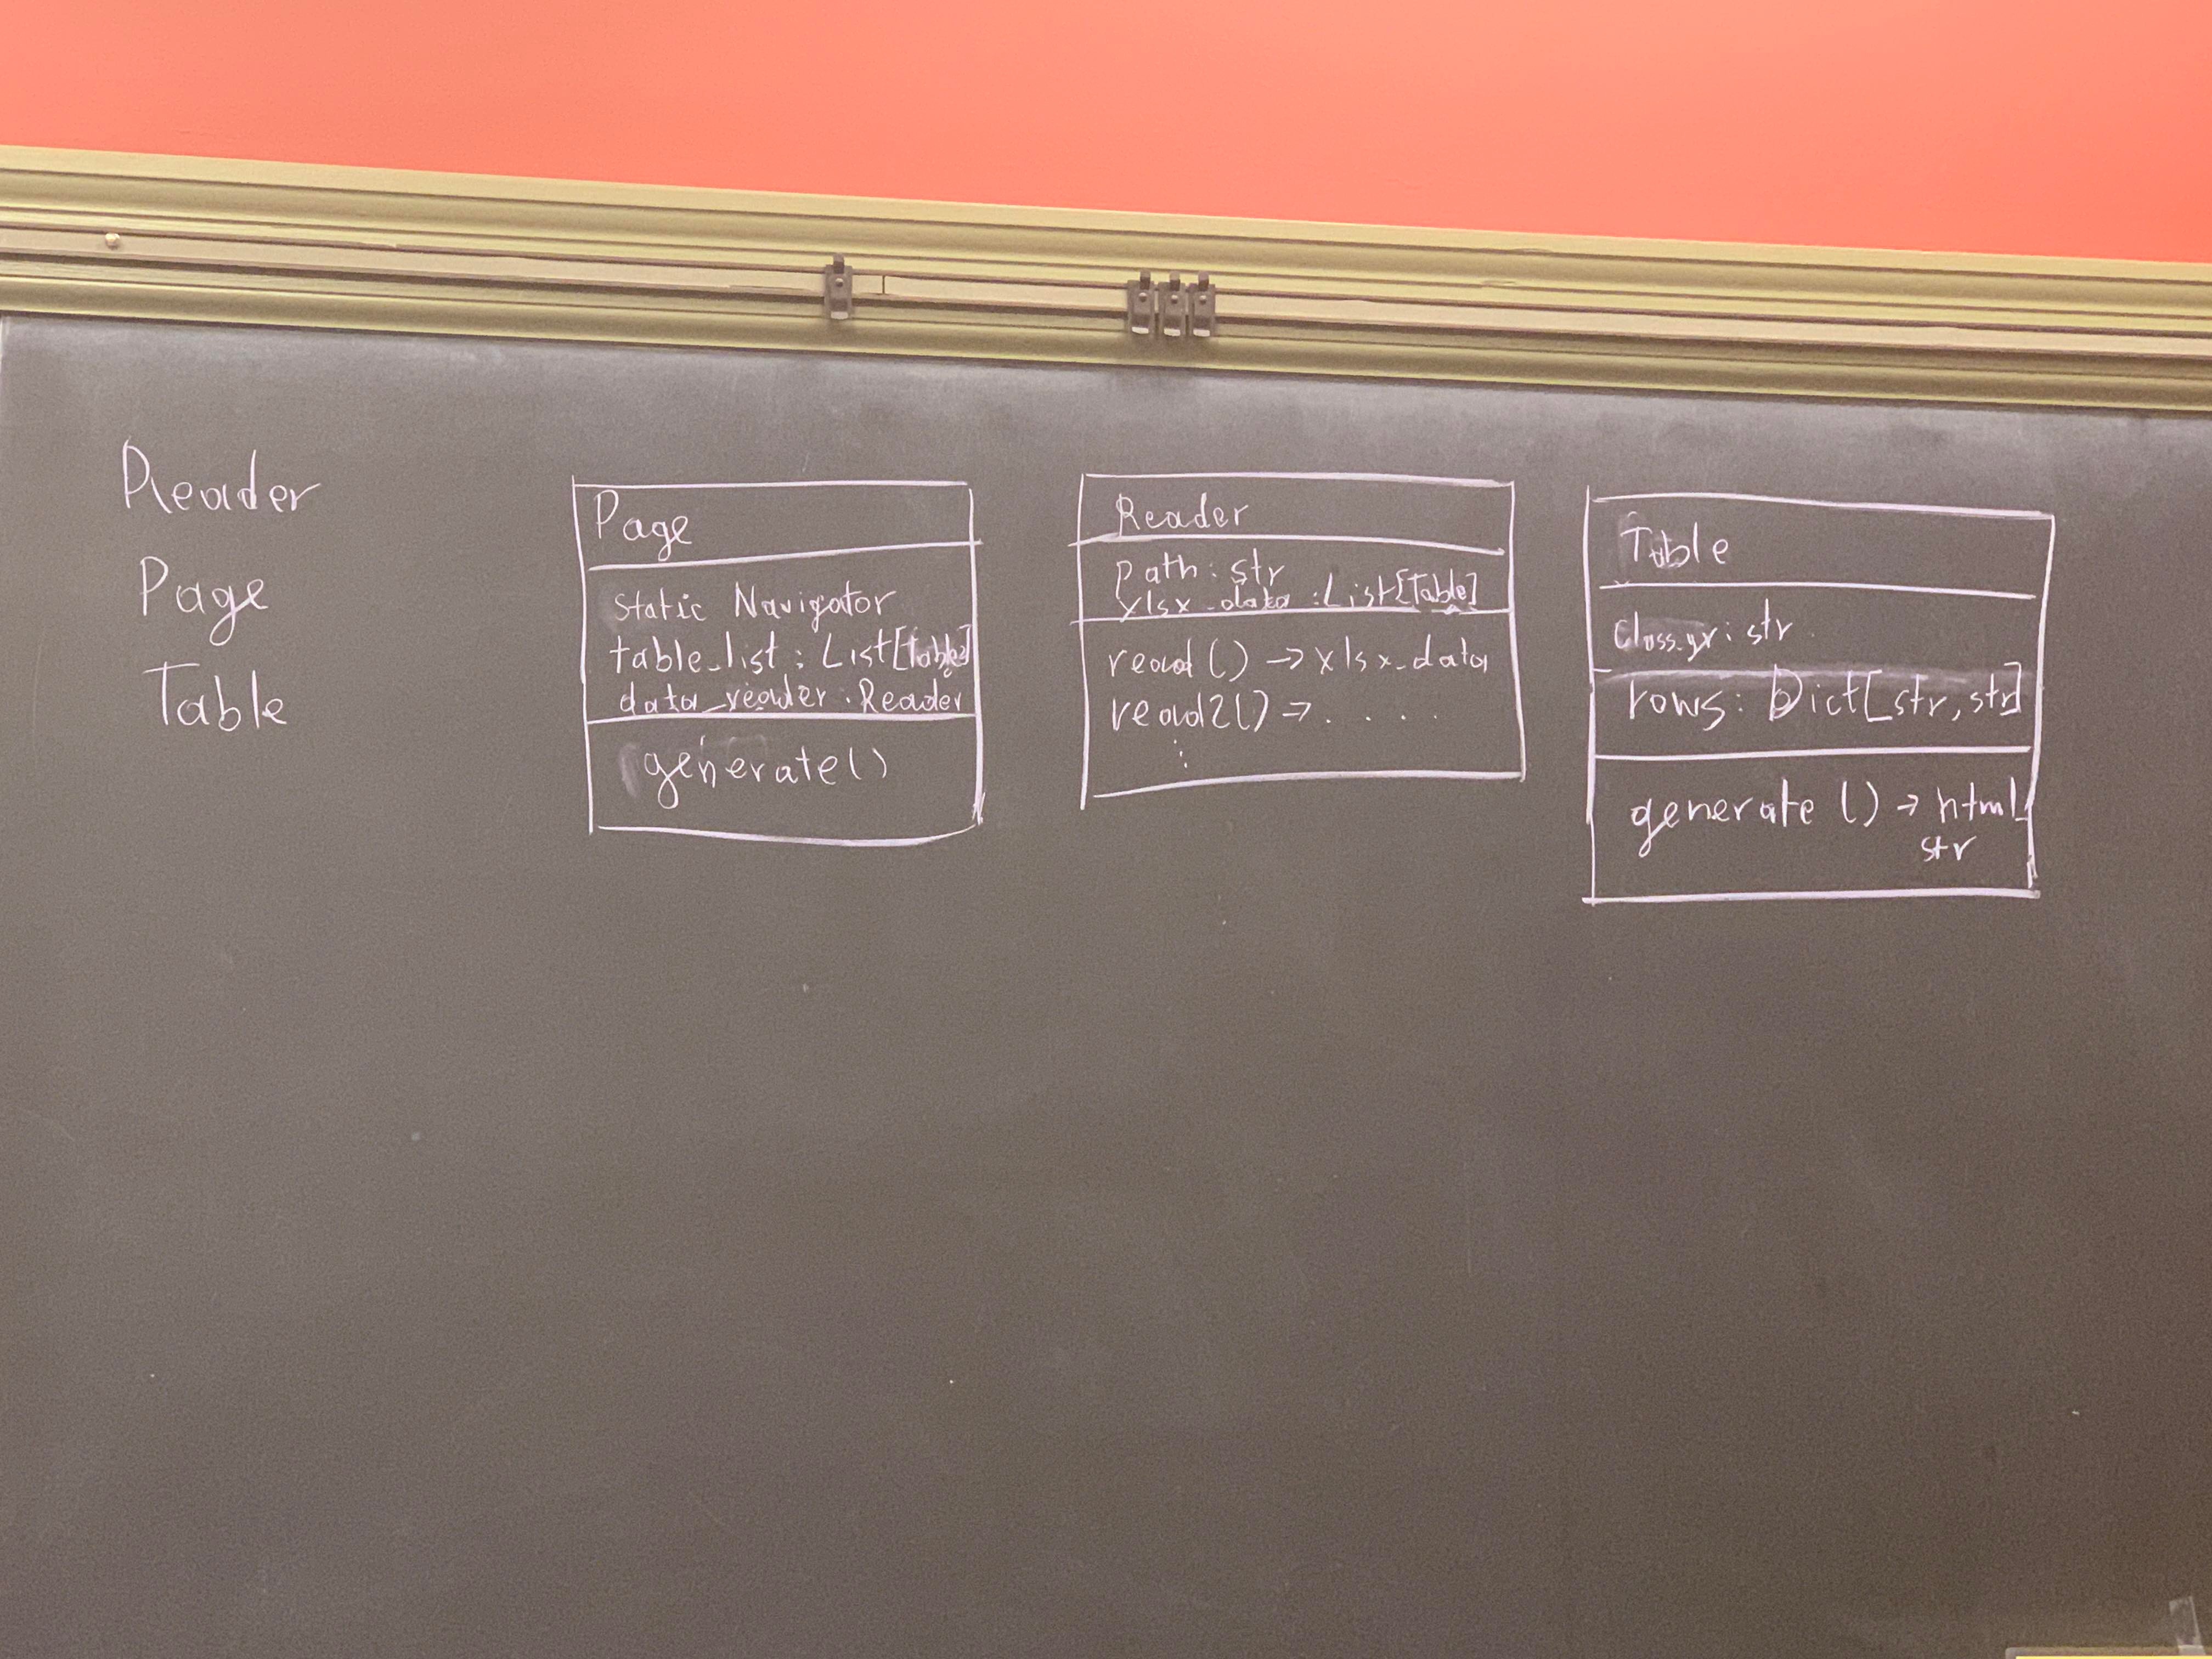 Reader
Page
Table
Page
static Navigator
table_list : List[Table]
data_reader : Reader
generate()
Reader
path : str
xlsx_data : List[Table]
read() → xlsx_data
read2() → . . . .
⋮
Table
class_yr : str
rows : Dict[str, str]
generate () → html
str